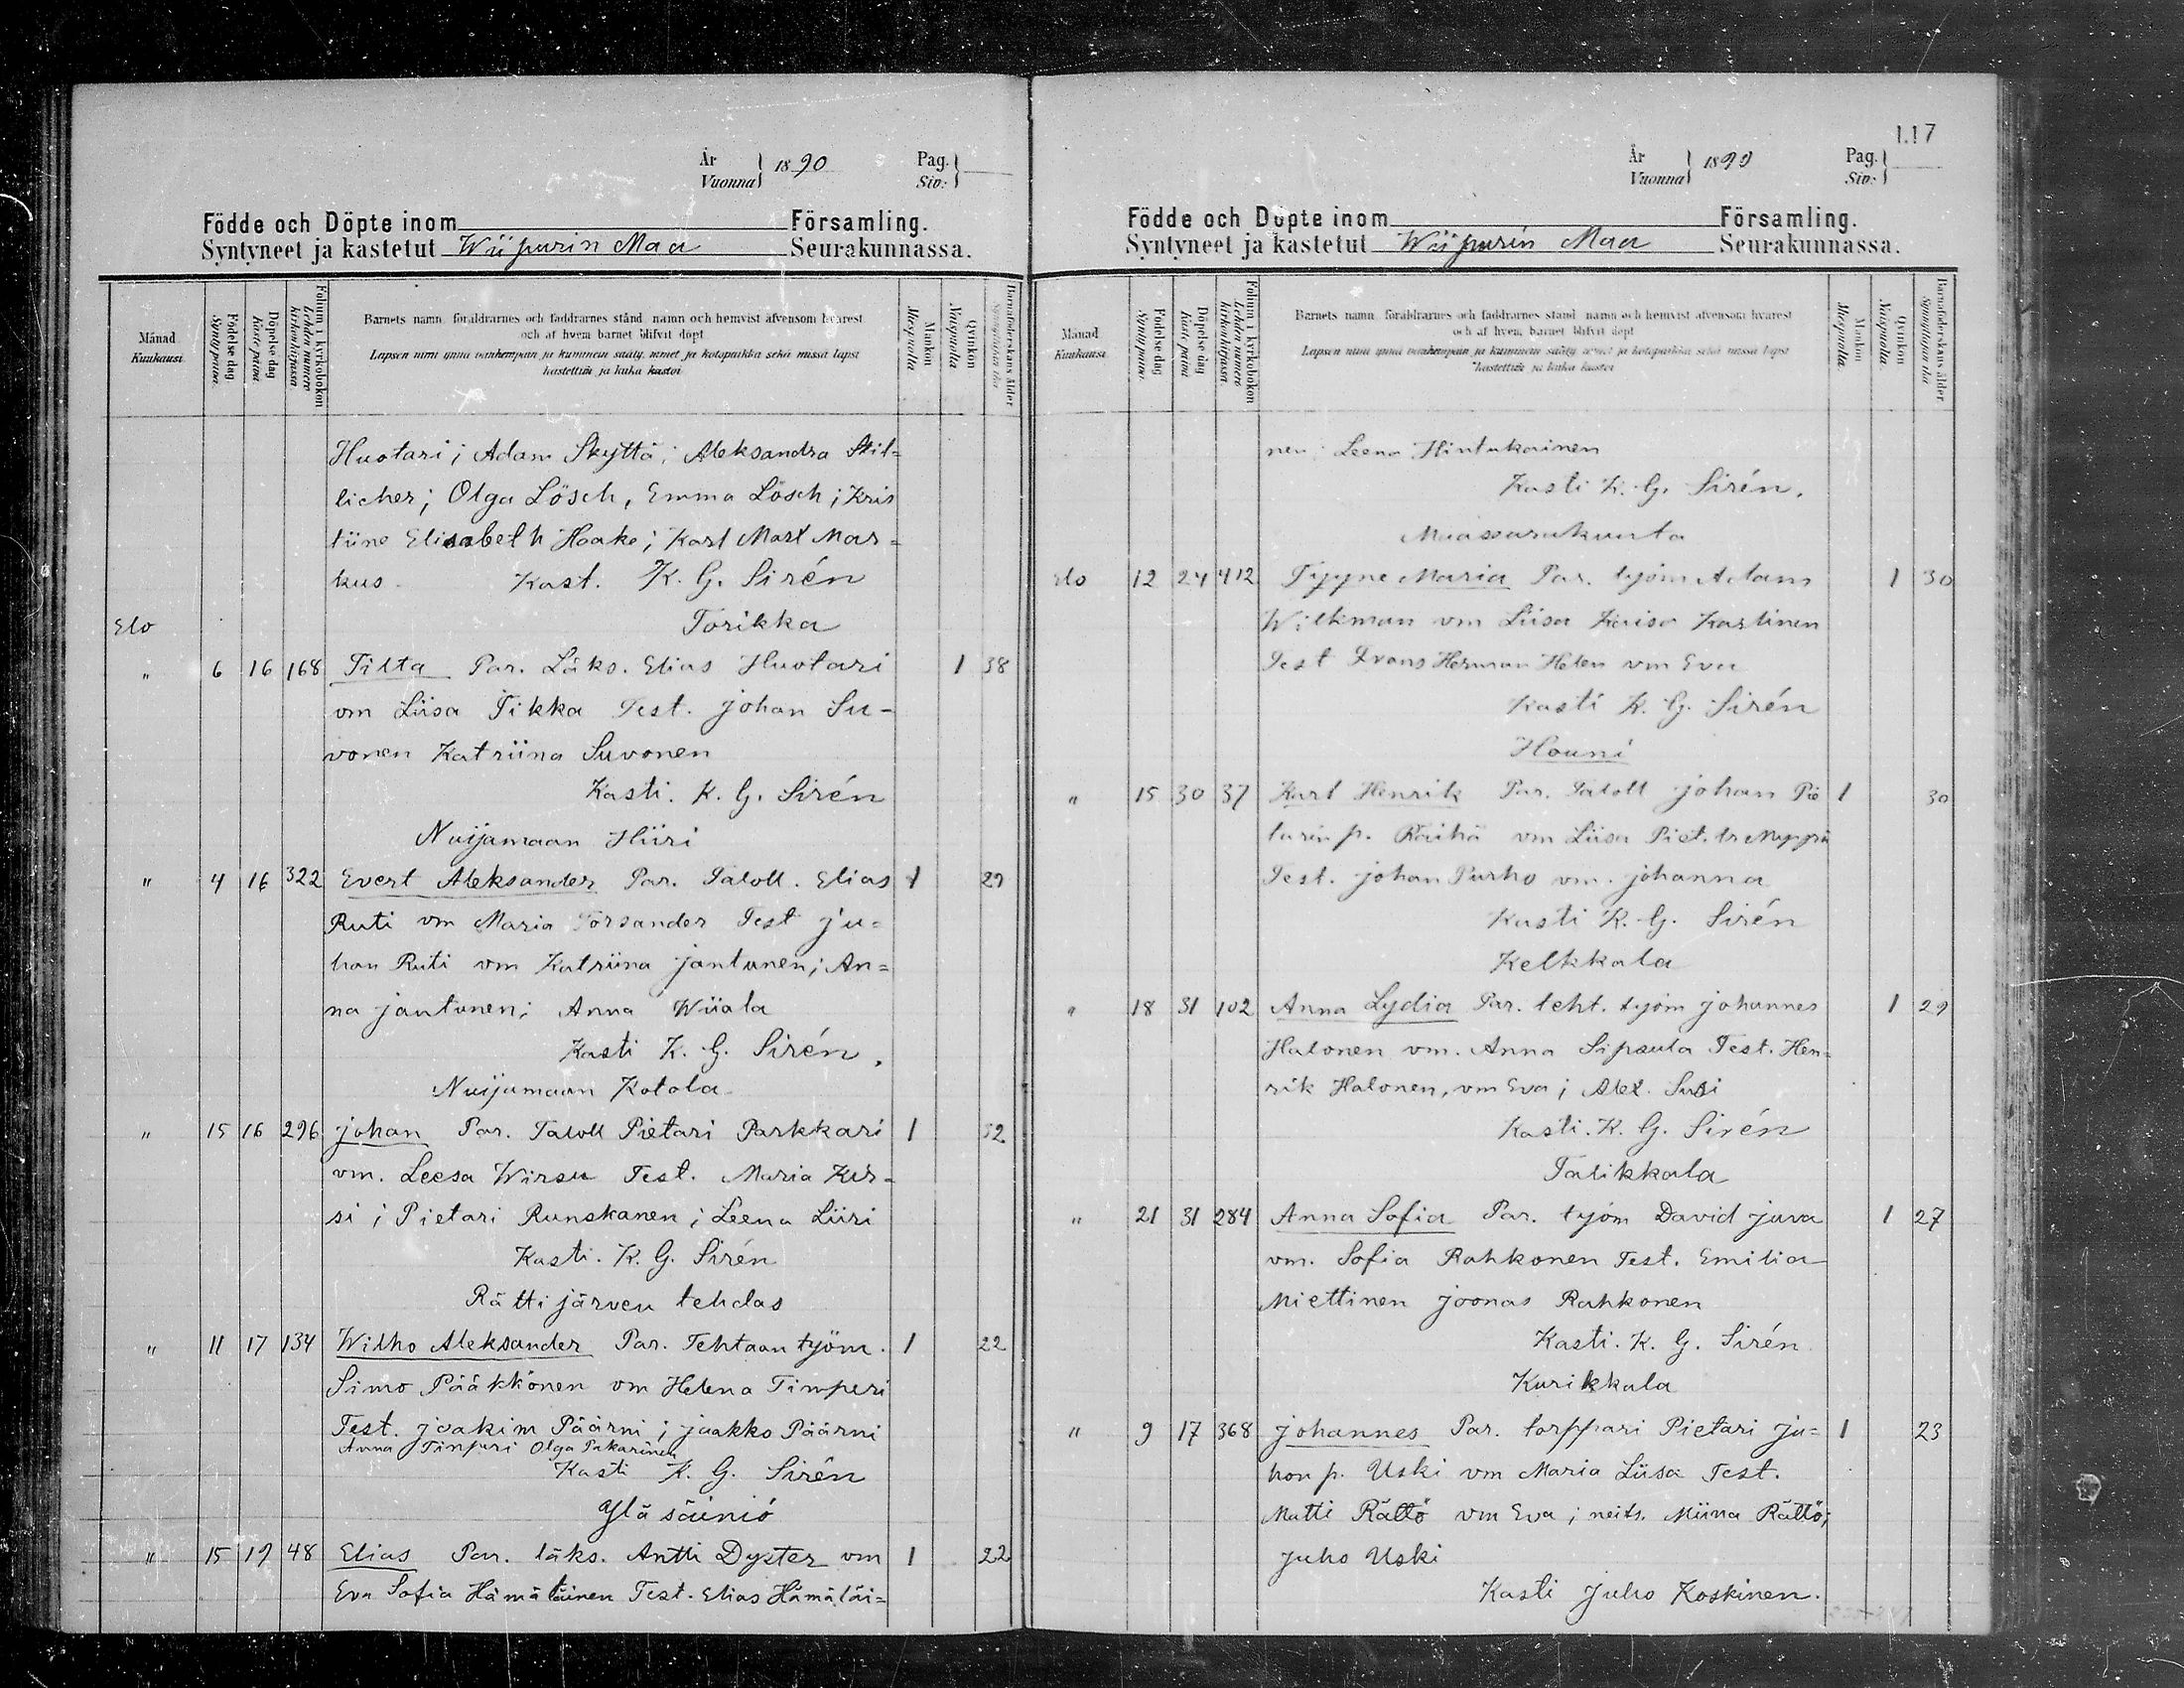 År
Vuonna 1890
Pag.
Siv:
Födde och Döpte inom Församling.
Syntyneet ja kastetut Wiipurin Maa Seurakunnassa.
Månad
Kuukausi
Födelse dag
Syntypäivä.
Döpelse dag
Kaste päivä
Folium i kyrkoboken
Lehden numero kirkonkirjassa
Barnets namn, föräldrarnes och faddrarnes stånd, namn och hemvist äfvensom hvarest
och af hvem barnet blifvit döpt
Lapsen nimi ynnä vanhempain ja kummein sääty, nimet ja kotopaikka sekä missä lapsi
kastettiin ja kuka kastoi
Mankön
Miespuolia
Qvinkön
Naispuolia
Barnaföderskans ålder
Synnyttäjän ikä
Huotari; Adam Skyttä; Aleksandra Stil=
licher; Olga Lösch, Emma Lösch; Kris
tiine Elisabeth Haake; Karl Marl Mar=
kus. Kast. K. G. Sirén
Elo Torikka
" 6 16 168 Tilta Par. Läks. Elias Huotari 1 38
vm Liisa Tikka Test. Johan Su-
vonen Katriina Suvonen
Kasti. K. G. Sirén
Nuijamaan Hiiri
" 4 16 322 Evert Aleksander Par. Taloll. Elias 1 29
Ruti vm Maria Törsander Test Ju=
han Ruti vm Katriina Jantunen; An=
na Jantunen; Anna Wiiala
Kasti K. G. Sirén.
Nuijamaan Kotola
" 15 16 296 Johan Par. Taloll Pietari Parkkari 1 32
vm. Leesa Wirsu Test. Maria Kur-
si; Pietari Runskanen; Leena Liiri
Kasti. K. G. Sirén
Rättijärven tehdas
" 11 17 134 Wilho Aleksander Par. Tehtaan työm. 1 22
Simo Pääkkönen vm Helena Timperi
Test. Joakim Päärni; Jaakko Päärni
Anna Timperi Olga Pakarinen
Kasti K. G. Sirén
Yläsäiniö
" 15 19 48 Elias Par. läks. Antti Dyster vm 1 22
Eva Sofia Hämäläinen Test. Elias Hämäläi=
117
År
Vuonna 1890
Pag.
Siv:
Födde och Döpte inom Församling.
Syntyneet ja kastetut Wiipurin Maa Seurakunnassa.
Månad
Kuukausi
Födelse dag
Syntypäivä.
Döpelse dag
Kaste päivä
Folium i kyrkoboken
Lehden numero kirkonkirjassa.
Barnets namn, föräldrarnes och faddrarnes stånd, namn och hemvist äfvensom hvarest
och af hvem barnet blifvit döpt
Lapsen nimi ynnä vanhempain ja kummein sääty, nimet ja kotopaikka sekä missä lapsi
kastettiin ja kuka kastoi
Mankön
Miespuolia.
Qvinkön
Naispuolia.
Barnaföderskans ålder.
Synnyttäjän ikä
nen; Leena Hintukainen
Kasti K. G. Sirén.
Maaseurakunta
Elo 12 24 412 Tyyne Maria Par. työm Adam 1 30
Wilkman vm Liisa Kaisa Karlinen
Test Frans Herman Helen vm Eva
Kasti K. G. Sirén
Houni
" 15 30 37 Karl Henrik Par. Taloll Johan Pie 1 30
tarin p. Räihä vm Liisa Piet. tr
Test. Johan Purho vm. Johanna
Kasti K. G. Sirén
Kelkkala
" 18 31 102 Anna Lydia Par. teht. työm Johannes 1 29
Halonen vm. Anna Sipsula Test. Hen=
rik Halonen, vm Eva; Alex. Susi
Kasti. K. G. Sirén
Talikkala
" 21 31 284 Anna Sofia Par. työm David Juva 1 27
vm. Sofia Rahkonen Test. Emilia
Miettinen Joonas Rahkonen
Kasti. K. G. Sirén
Kurikkala
" 9 17 368 Johannes Par. torppari Pietari Ju= 1 23
hon p. Uski vm Maria Liisa Test.
Matti Rättö vm Eva; neits. Miina Rättö;
Juho Uski
Kasti Juho Koskinen.